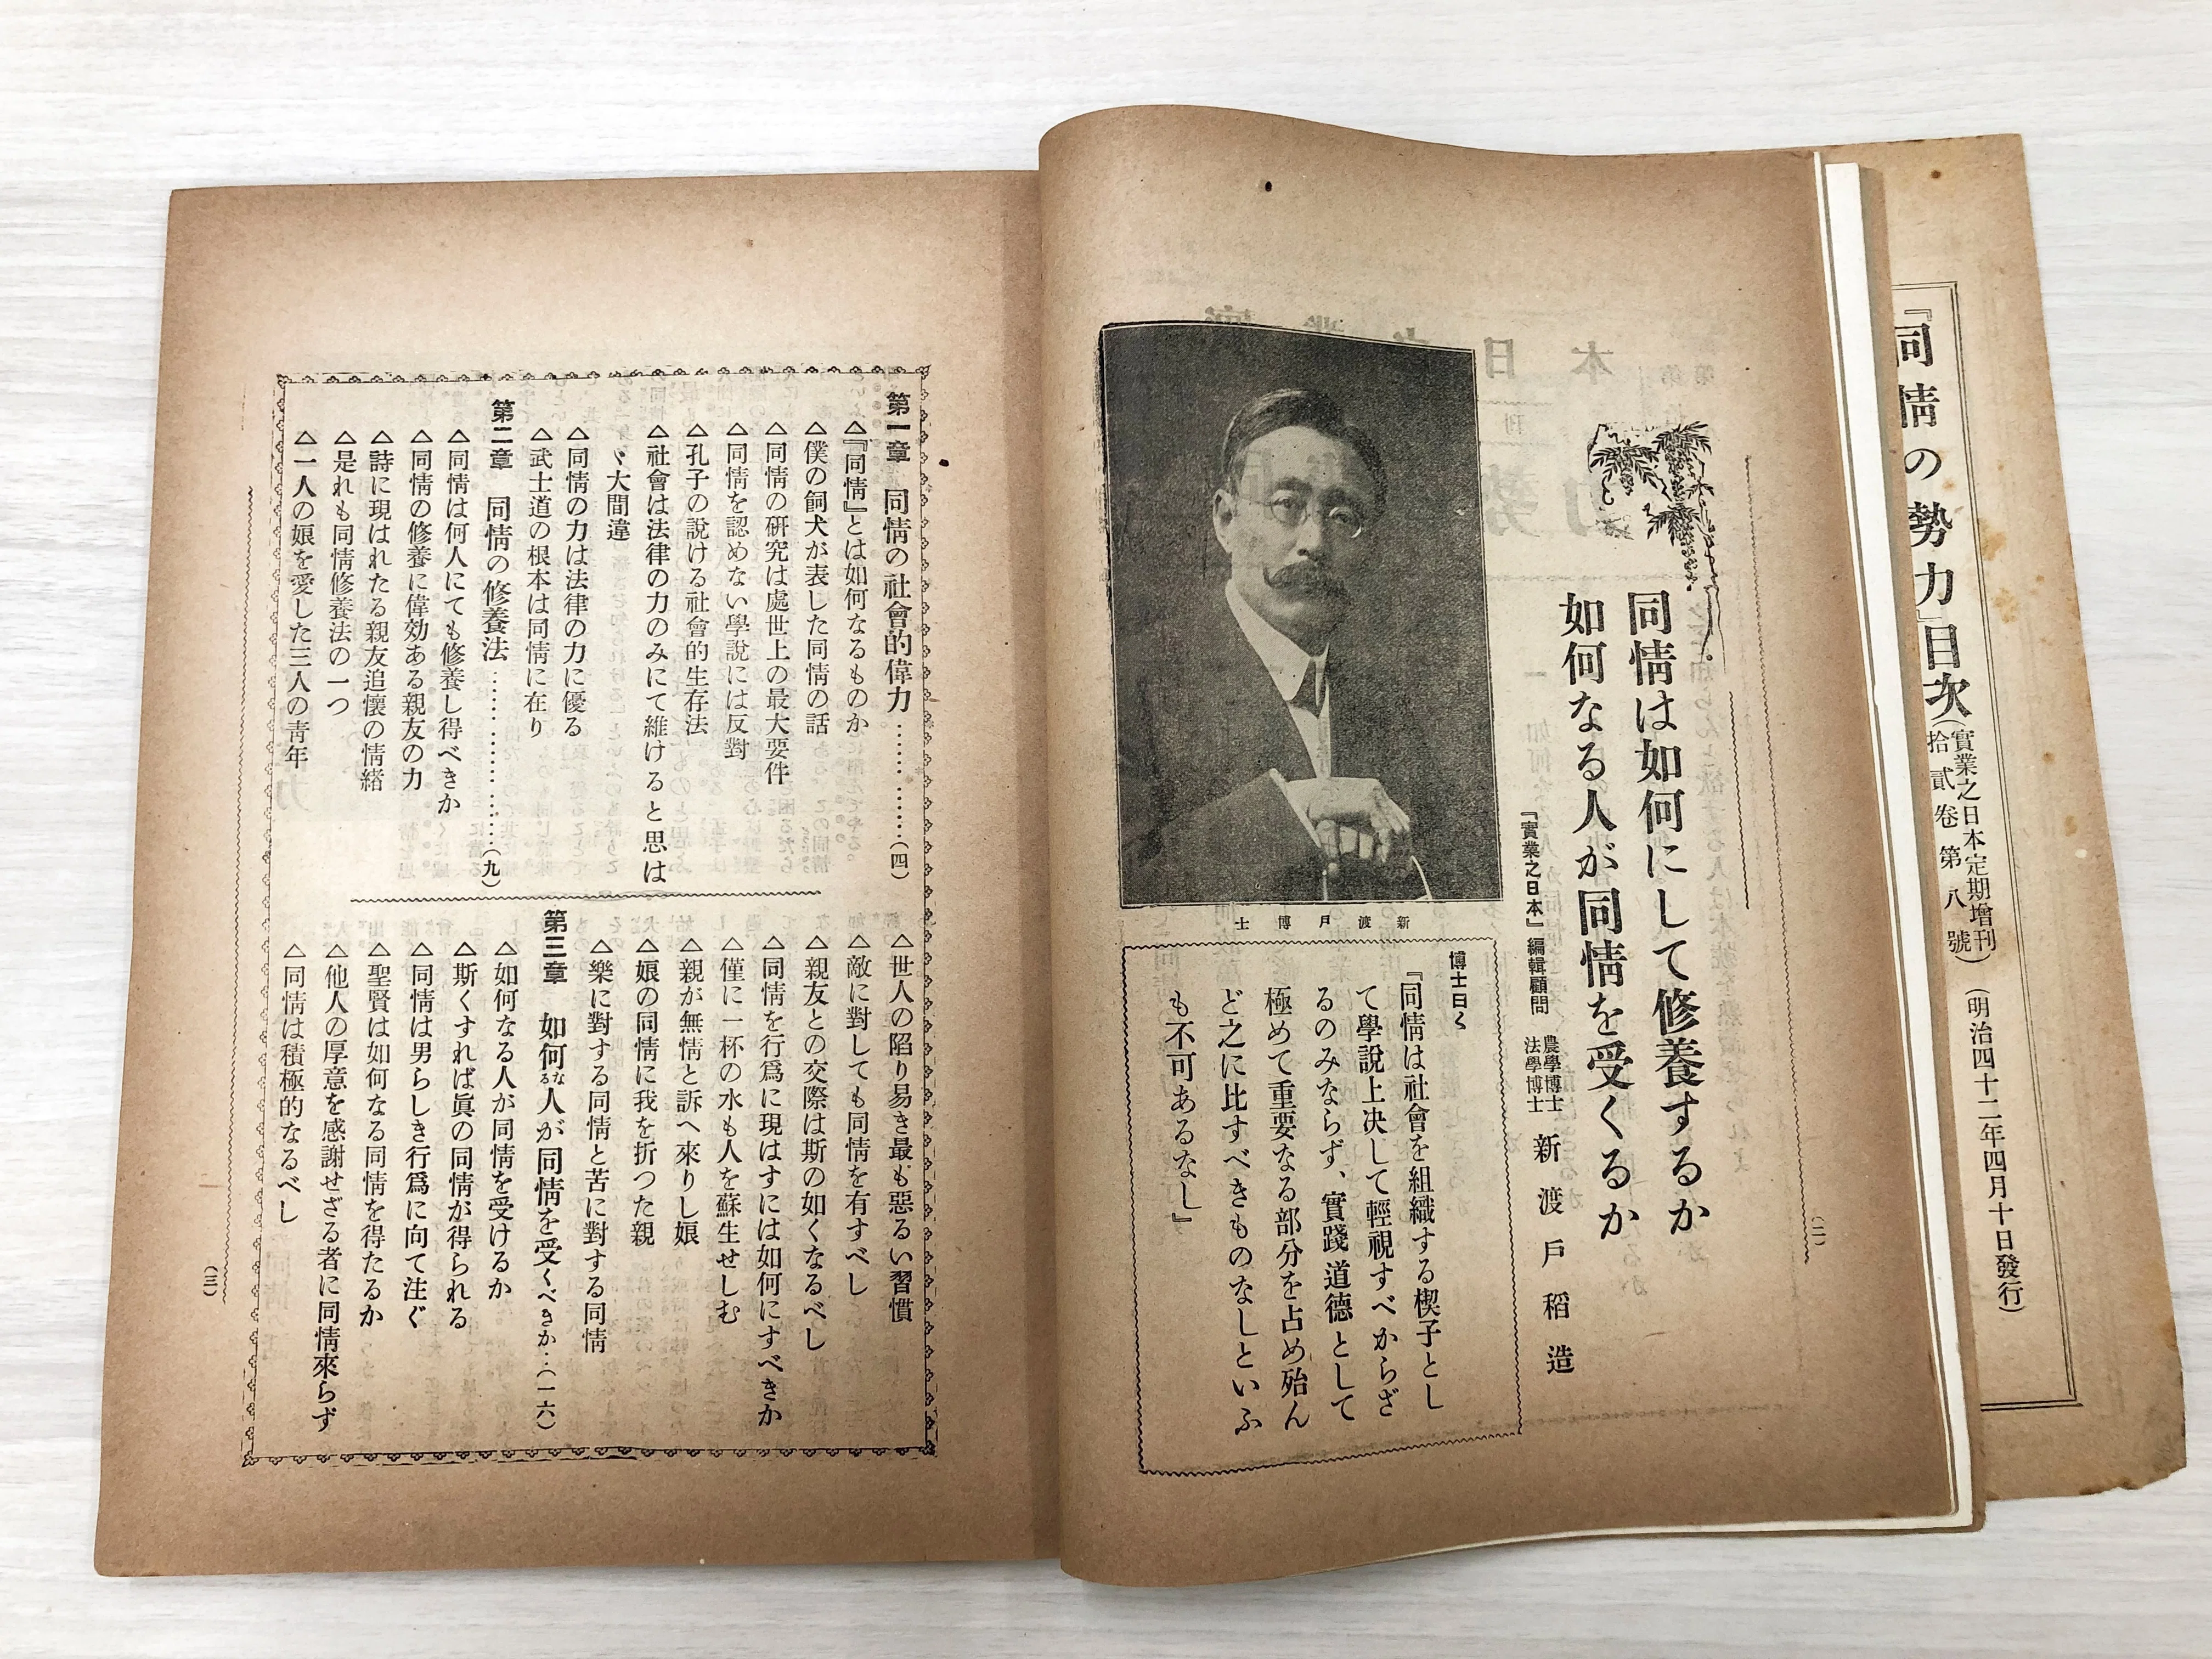 『同情の勢力』目次
(實業之日本定期增刊
拾貳卷第八號)
(明治四十二年四月十日發行)
同情は如何にして修養するか
如何なる人が同情を受くるか
『實業之日本』編輯顧問
農學博士
法學博士
新渡戸稻造
(二)
新渡戸博士
博士曰く
『同情は社會を組織する楔子とし
て學說上決して輕視すべからざ
るのみならず、實踐道德として
極めて重要なる部分を占め殆ん
ど之に比すべきものなしといふ
も不可あるなし』
第一章 同情の社會的偉力…………(四)
△『同情』とは如何なるものか
△僕の飼犬が表した同情の話
△同情の硏究は處世上の最大要件
△同情を認めない學說には反對
△孔子の說ける社會的生存法
△社會は法律の力のみにて維けると思は
〻大間違
△同情の力は法律の力に優る
△武士道の根本は同情に在り
第二章 同情の修養法……………(九)
△同情は何人にても修養し得べきか
△同情の修養に偉効ある親友の力
△詩に現はれたる親友追懷の情緖
△是れも同情修養法の一つ
△一人の娘を愛した三人の靑年
△世人の陷り易き最も惡るい習慣
△敵に對しても同情を有すべし
△親友との交際は斯の如くなるべし
△同情を行爲に現はすには如何にすべきか
△僅に一杯の水も人を蘇生せしむ
△親が無情と訴へ來りし娘
△娘の同情に我を折つた親
△樂に對する同情と苦に對する同情
第三章 如何なる人が同情を受くべきか‥(一六)
△如何なる人が同情を受けるか
△斯くすれば眞の同情が得られる
△同情は男らしき行爲に向て注ぐ
△聖賢は如何なる同情を得たるか
△他人の厚意を感謝せざる者に同情來らず
△同情は積極的なるべし
(三)